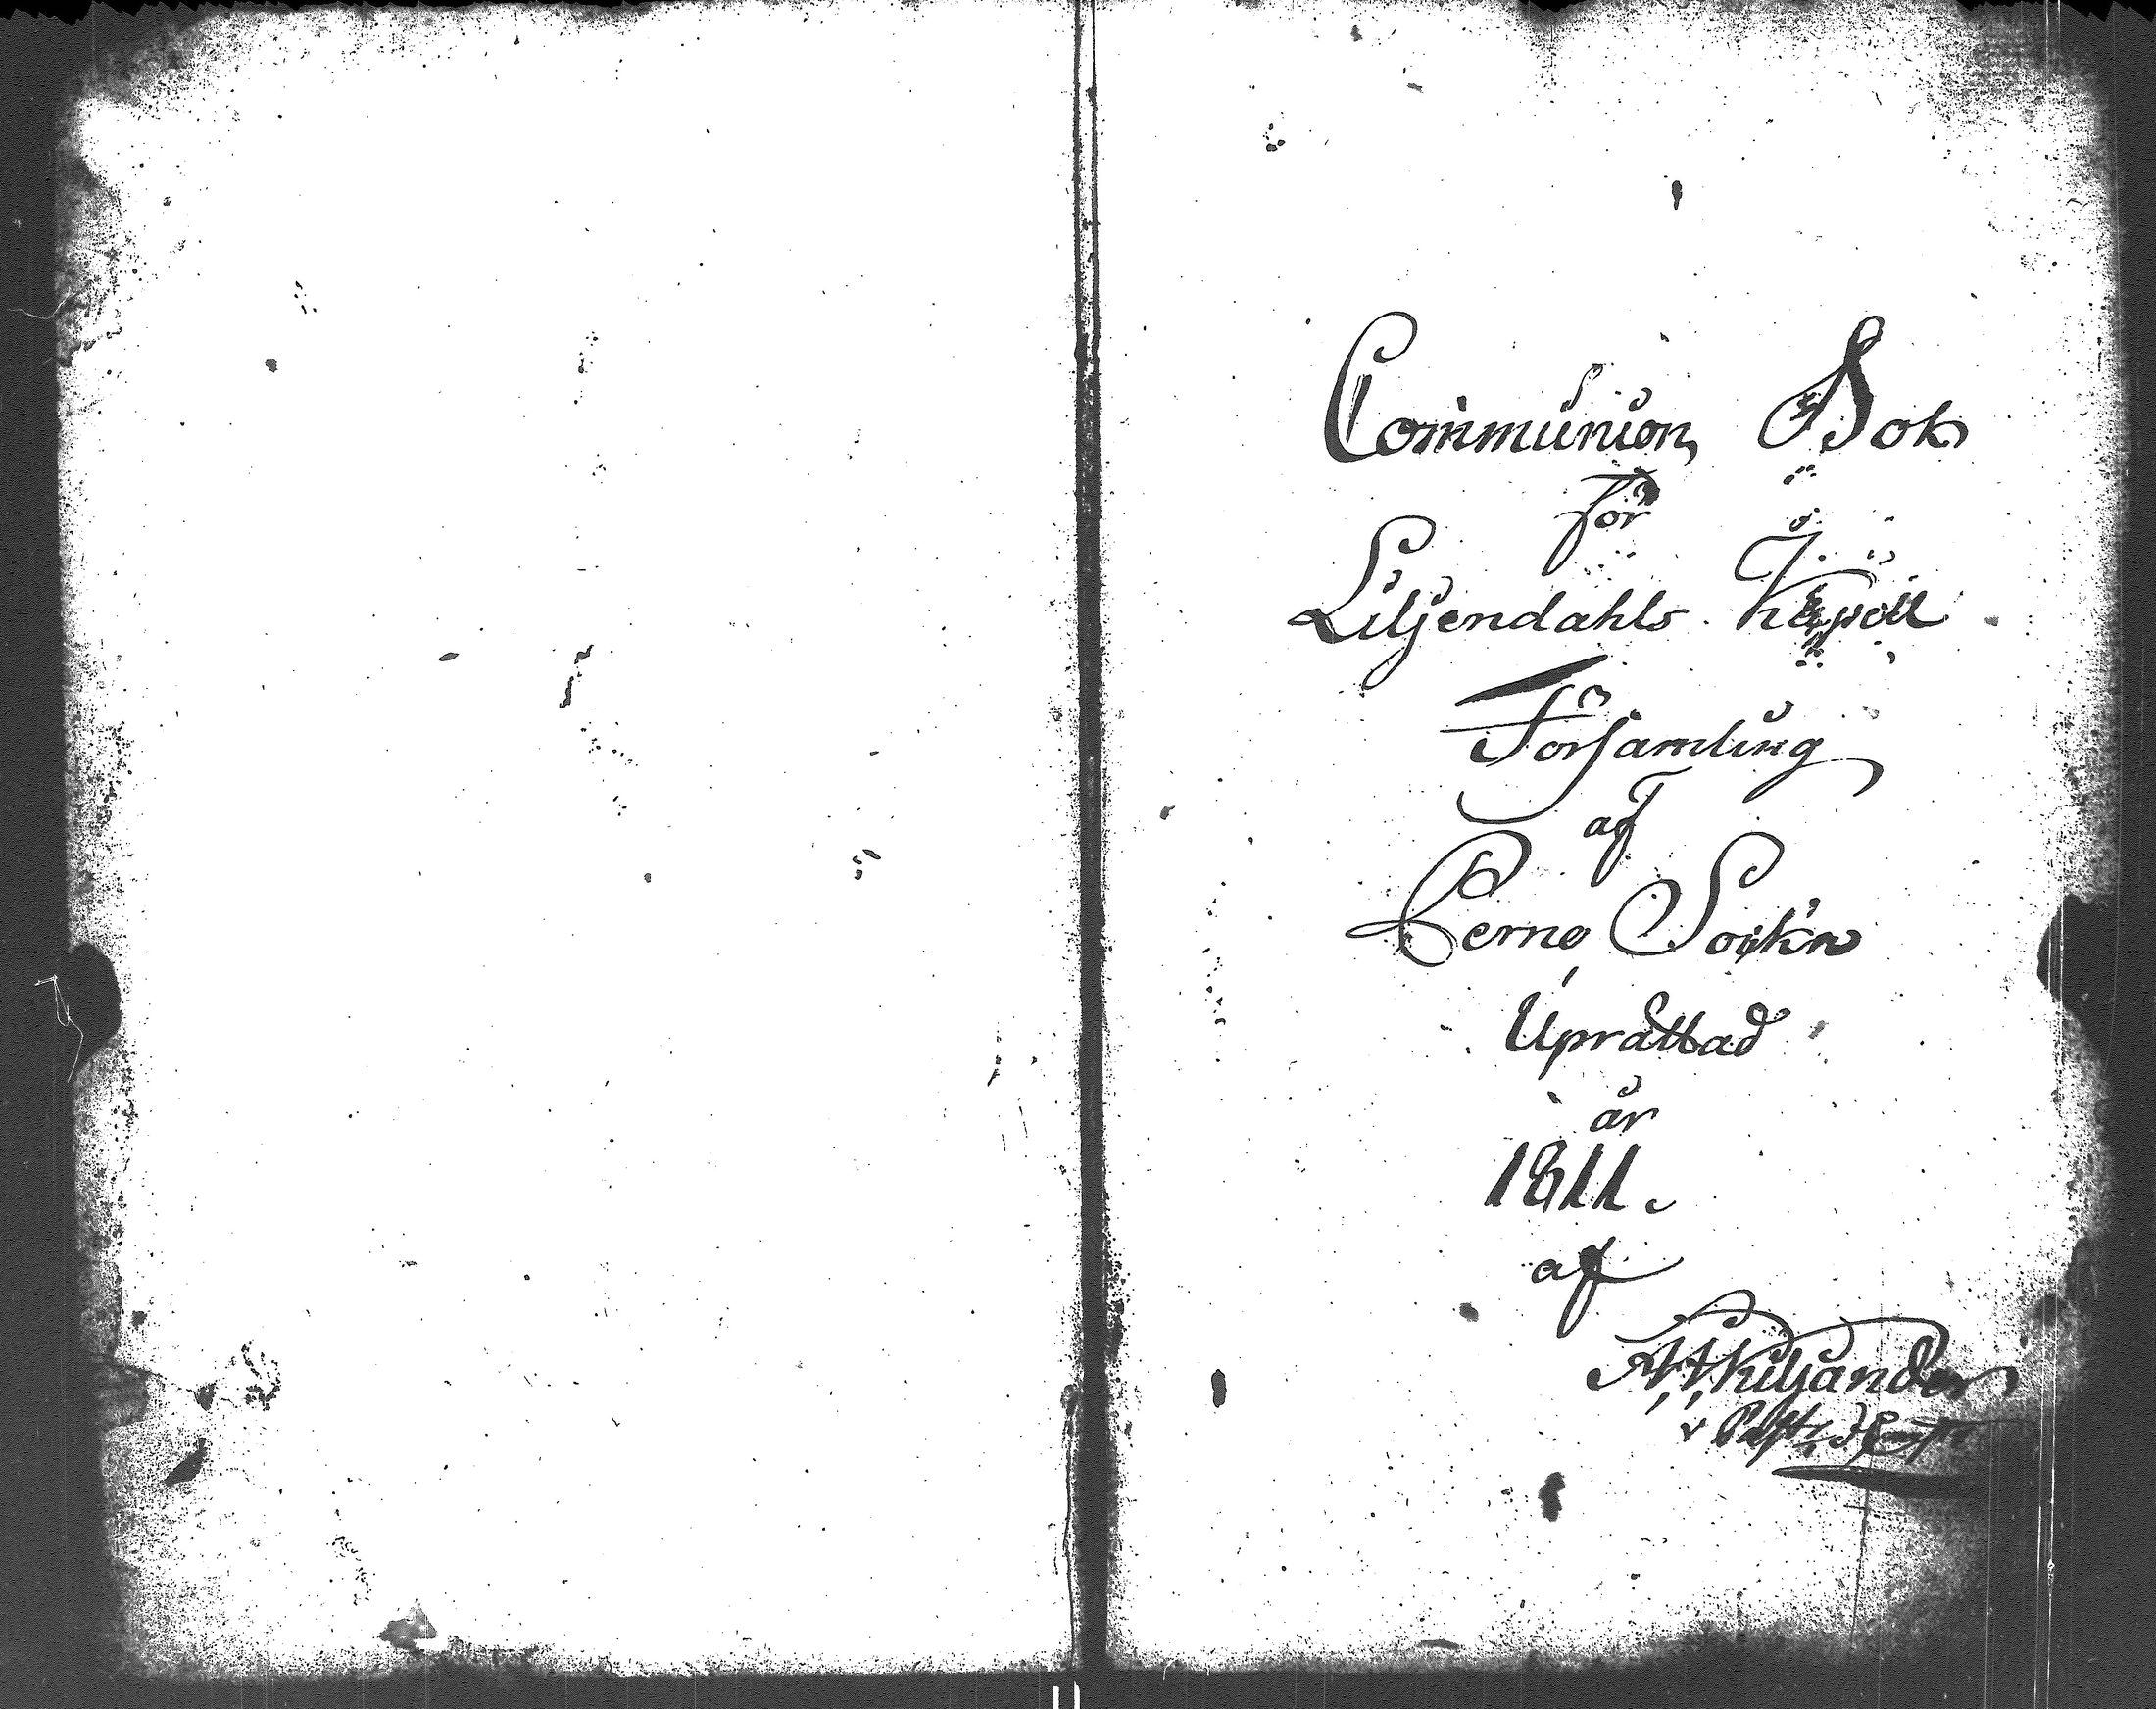 Communion Bok
för
Liljendahls Kapell
Församling
af
Perno Sockn
Uprättad
år
1811.
af
Kiljander
v Past: